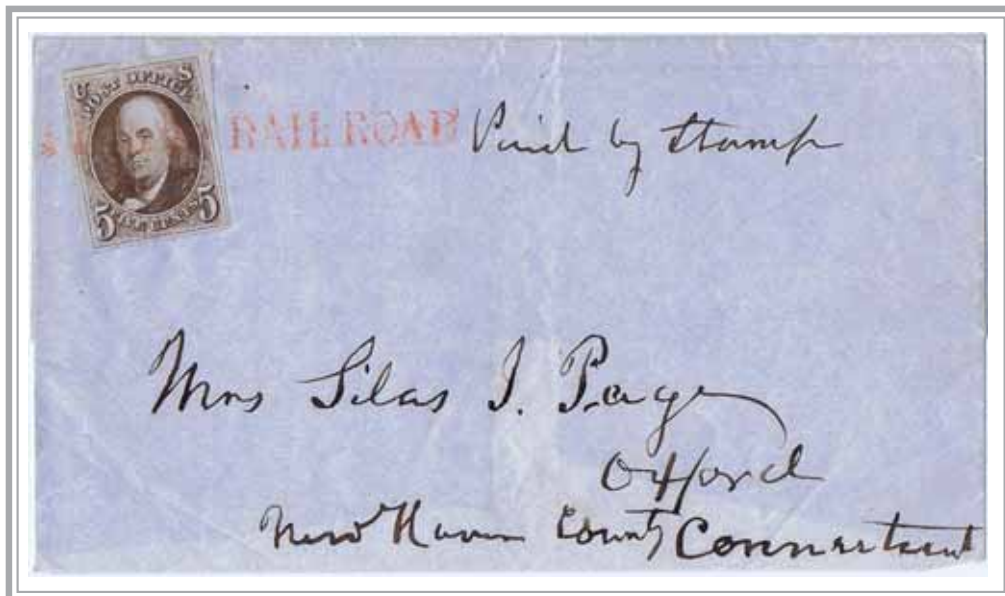 U S
POST OFFICE
5 FIVE CENTS 5
RAIL ROAD
Paid by Stamp
Mrs Silas I. Page
Oxford
New Haven County Connecticut